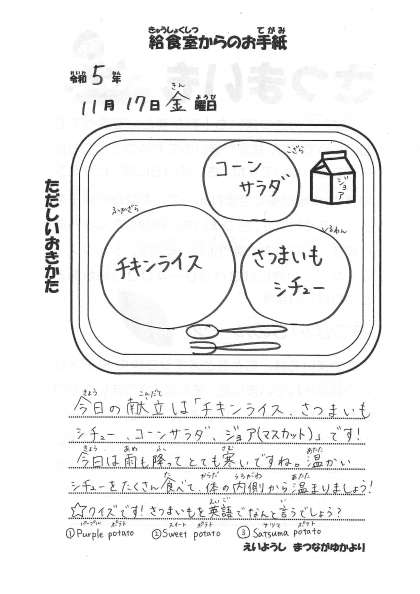 給食室からのお手紙
きゅうしょくしつ てがみ
令和5年
れいわ ねん
11月17日金曜日
きん ようび
ただしいおきかた
こざら
コーン
サラダ
ジョア
ふかざら
チキンライス
しるわん
さつまいも
シチュー
きょう こんだて
今日の献立は「チキンライス、さつまいも
シチュー、コーンサラダ、ジョア(マスカット)」です!
きょう あめ ふ さむ あたた
今日は雨も降ってとても寒いですね。温かい
た からだ うちがわ あたた
シチューをたくさん食べて、体の内側から温まりましょう!
えいご い
☆クイズです!さつまいもを英語でなんと言うでしょう?
パープル ポテト スイート ポテト サツマ ポテト
①Purple potato ②Sweet potato ③Satsuma potato
えいようし まつながゆかより